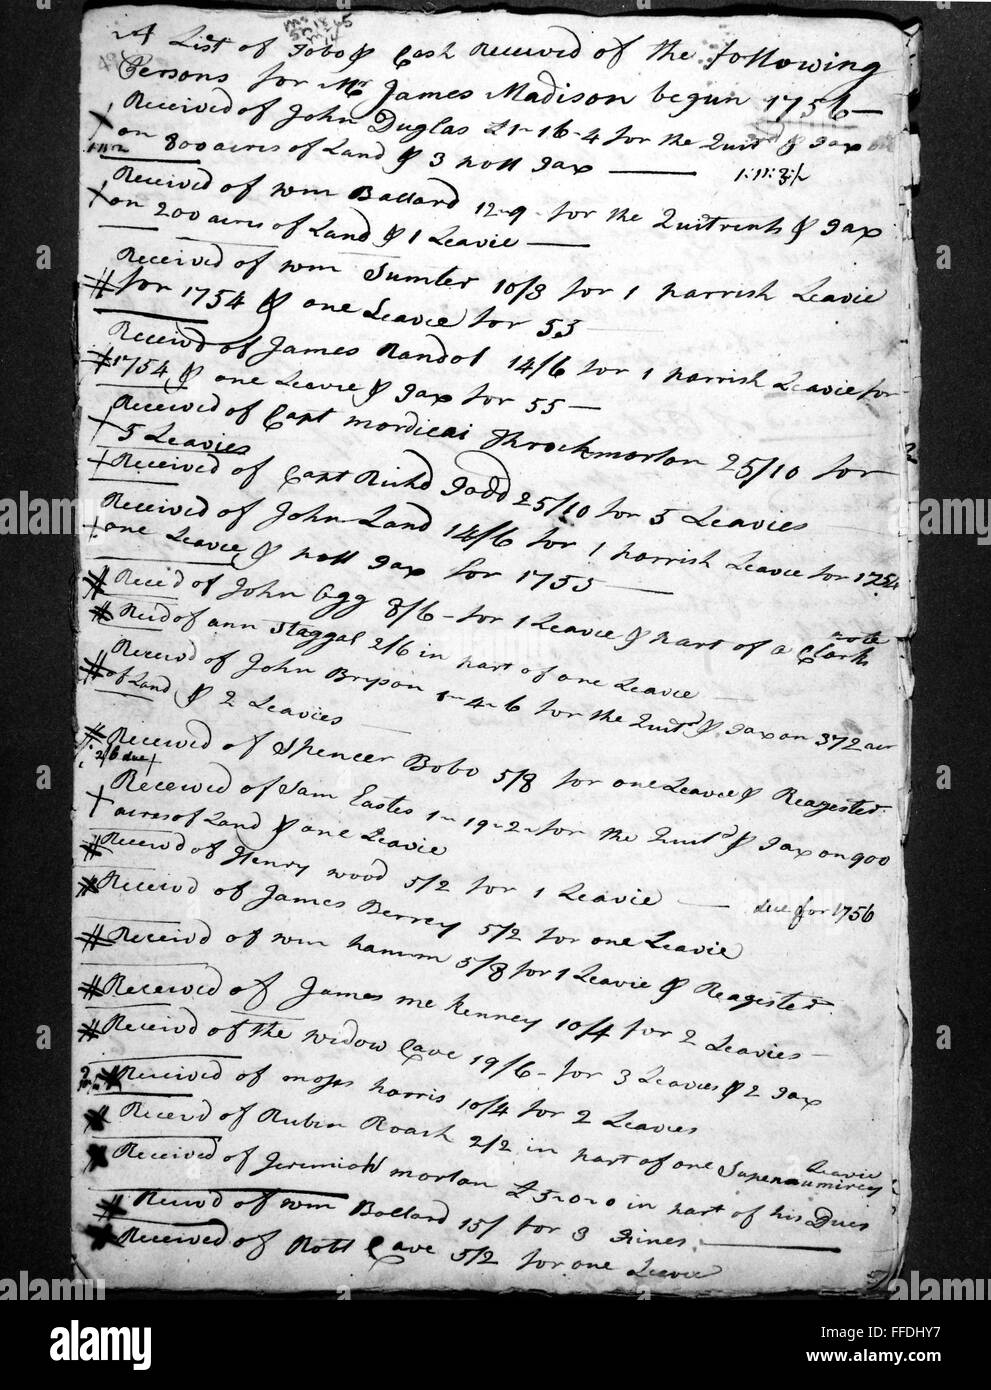 A List of Tobo & Cash Received of the following
Persons for Mr James Madison begun 1756 —
Received of John Duglas £1-16-4 for the Quitd & Tax
on 800 acres of Land & 3 Tax
Received of Wm Ballard 12-9 - for the Quitrents & Tax
on 200 acres of Land & 1 Leavie —
Received of Wm Sumter 10/3 for 1 parrish Leavie
for 1754 & one Leavie for 55 —
Received of James Randol 14/6 for 1 parrish Leavie for
1754 & one Leavie & Tax for 55 —
Received of Capt Mordicai Throckmorton 25/10 for
5 Leavies
Received of Capt Richd Todd 25/10 for 5 Leavies
Received of John Land 14/6 for 1 parrish Leavie for 1754
one Leavie & Tax for 1755 —
Receid of John Ogg 8/6 - for 1 Leavie & part of a Clarks note
Reid of ann Staggal 2/6 in part of one Leavie —
Receivd of John Bryson 1-4-6 for the Quitd & Tax on 372 acr
of Land & 2 Leavies —
Received of Spencer Bobo 5/8 for one Leavie & Reagester
2/6 due
Received of Sam Eastes 1-19-2 - for the Quitd & Tax on 900
acres of Land & one Leavie
Received of Henry Wood 5/2 for 1 Leavie — due for 1756
Received of James Berrey 5/2 for one Leavie
Receivd of Wm hamm 5/8 for 1 Leavie & Reagester
Received of James mc Kenney 10/4 for 2 Leavies —
Receivd of the widow Cave 19/6 - for 3 Leavies & 2 Tax
Received of harris 10/4 for 2 Leavies
Receivd of Rubin Roach 2/2 in part of one Supernumirey Leavie
Received of Jeremiah morton £5-0-0 in part of his Dues
Receivd of Wm Ballard 15/ for 3 Fines —
Received of Robt Cave 5/2 for one Leavie
alamy
alamy stock photo
FFDHY7
www.alamy.com